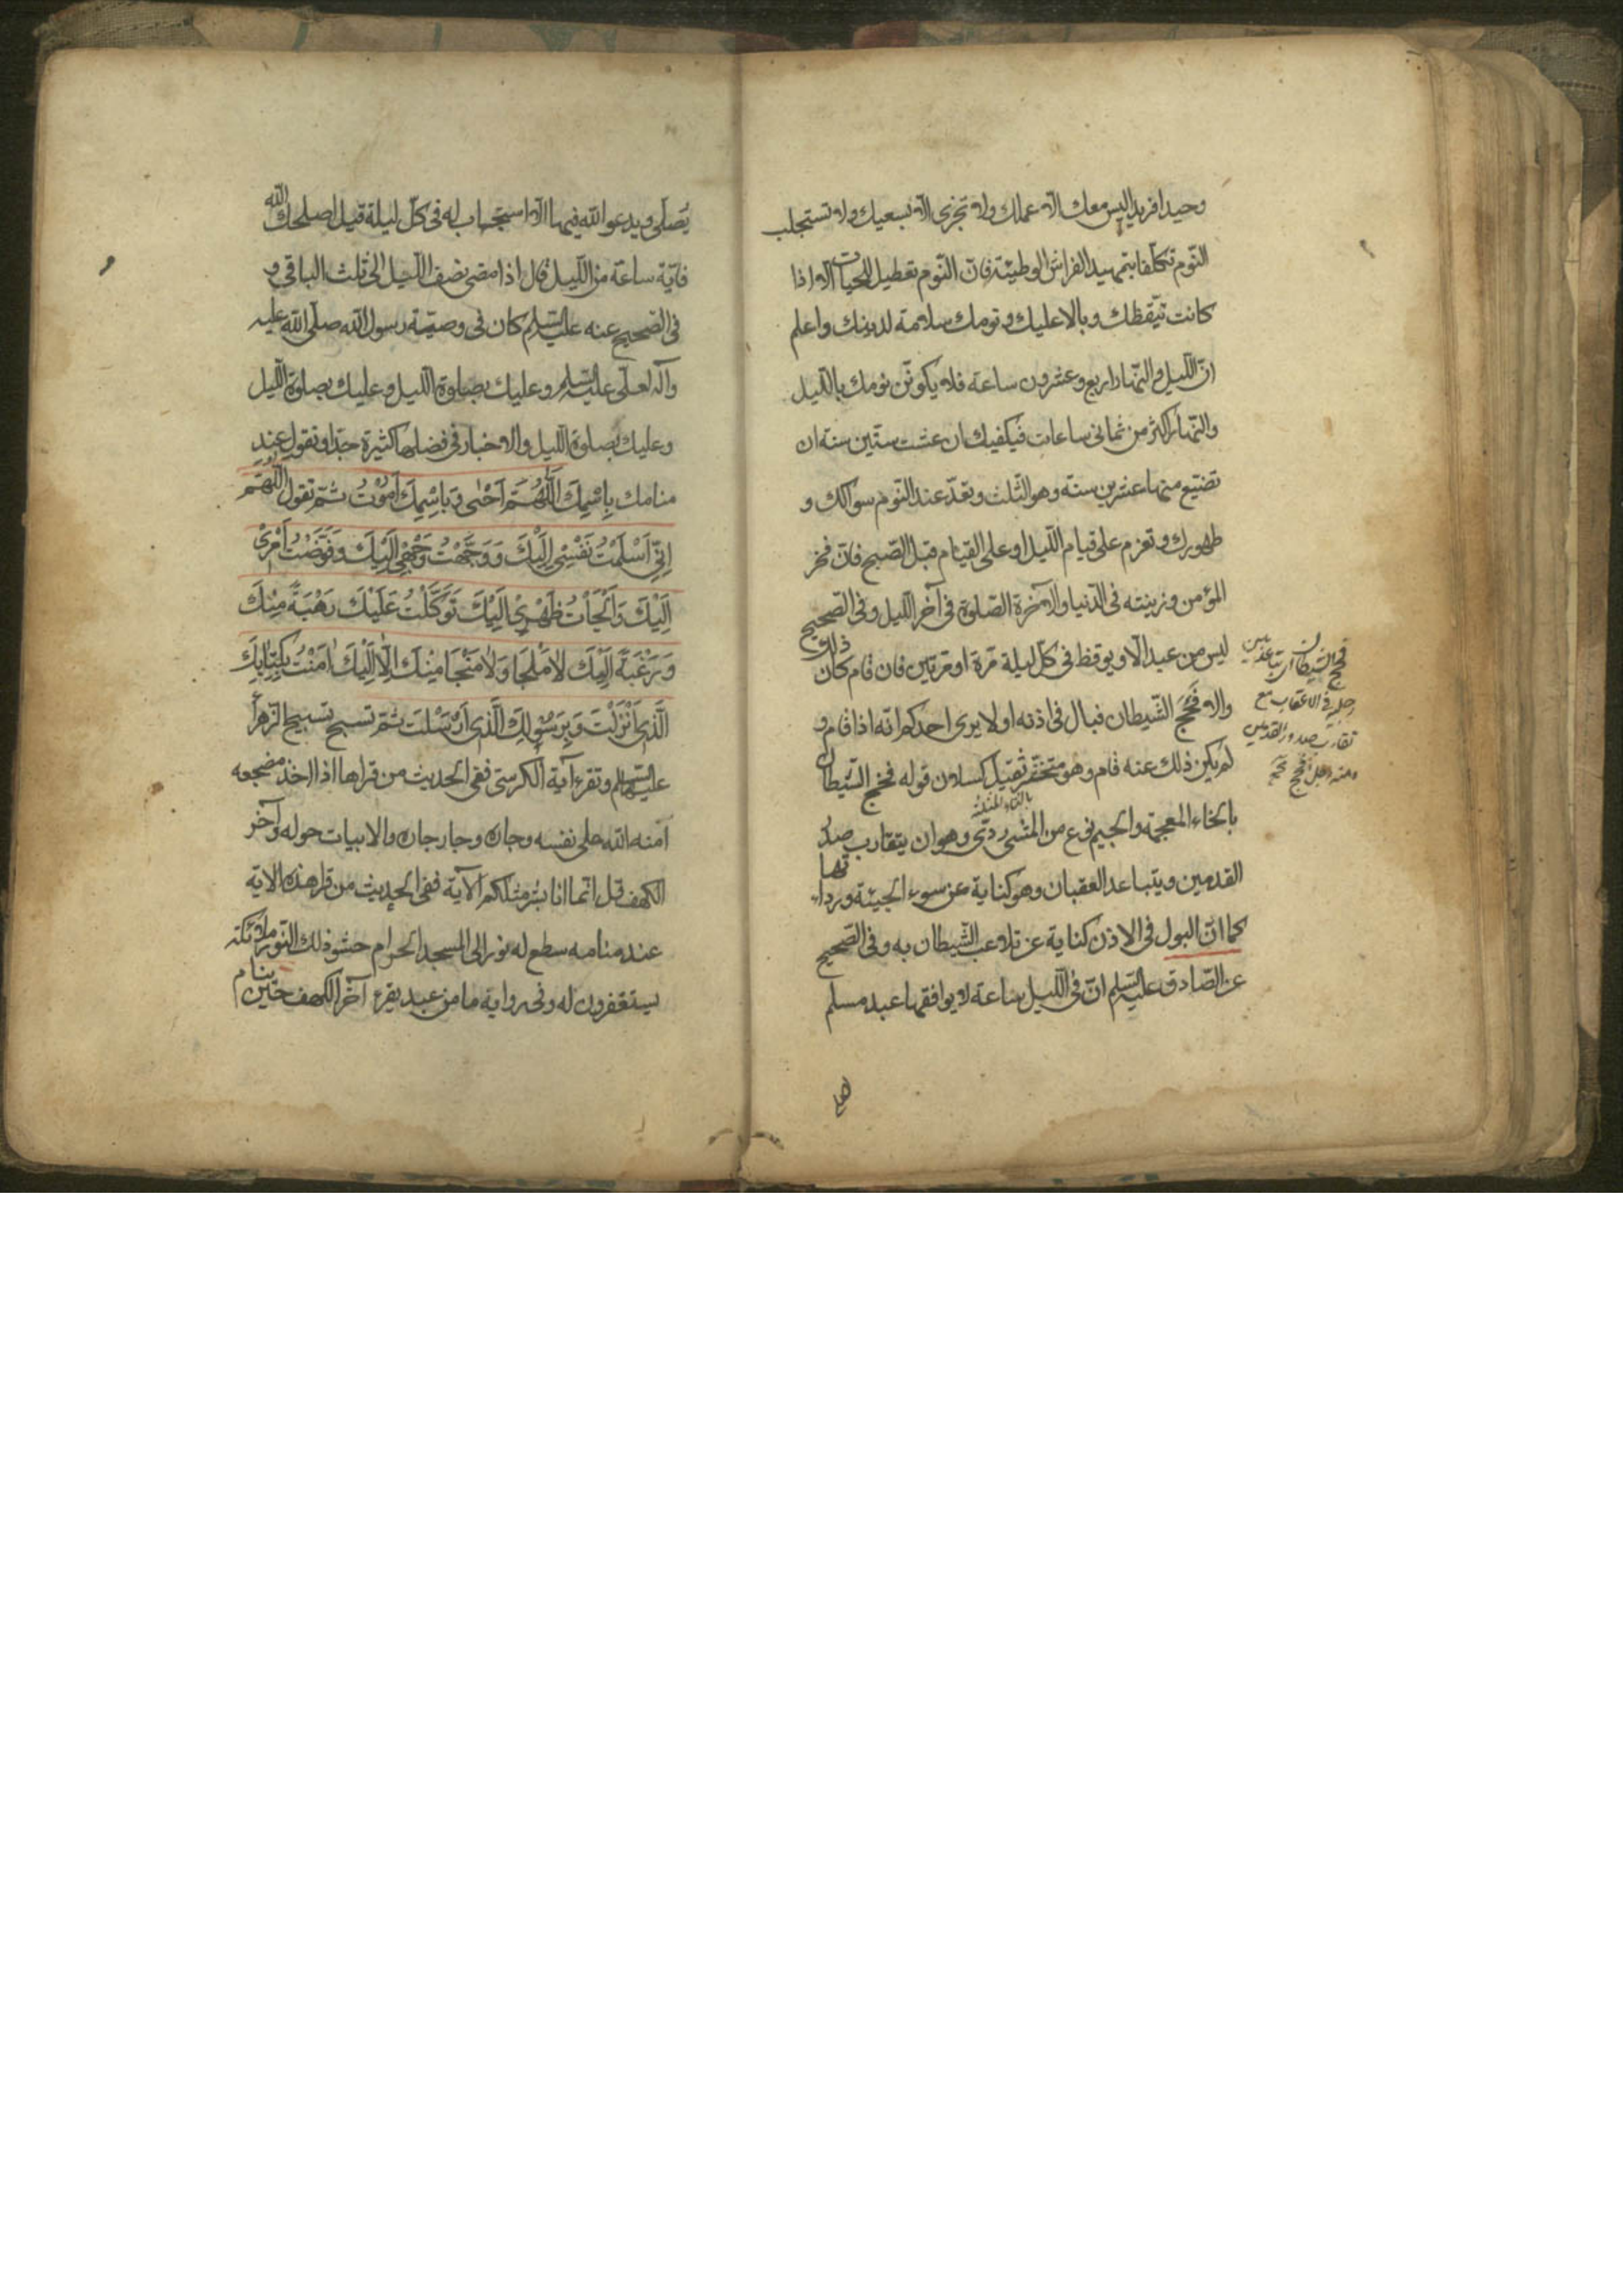 وحيدا فريدا ليس معك الا عملك ولا تجزى الا بسعيك ولا تستجلب
النّوم تكلّفا بتمهيد الفراش الوطيئة فانّ النّوم تعطيل للحيات الا اذا
كانت تيقّظك وبالا عليك ونومك سلامة لدينك واعلم
انّ اللّيل والنّهار اربع وعشرون ساعة فلا يكوننّ نومك باللّيل
والنّهار اكثر من ثمانى ساعات فيكفيك ان عشت ستّين سنة ان
تضيّع منها عشرين سنة وهو الثّلث وتعدّ عند النّوم سواكك و
طهورك وتعزم على قيام اللّيل او على القيام قبل الصّبح فانّ فخر
المؤمن وزينته فى الدّنيا والآخرة الصّلوة فى آخر اللّيل وفى الصّحيح
ليس من عبد الّا ويوقظ فى كلّ ليلة مرّة او مرّتين فان قام كان ذلك
والا فَحَّجَ الشّيطان فبال فى اذنه او لا يرى احدكم انّه اذا قام و
لم يكن ذلك عنه قام وهو متخثّر ثقيل كسلان قوله فخج الشّيطان
بالثاء المثلثة
بالخاء المعجمة والجيم نوع من المشى ردىّ وهو ان يتقارب صدر
القدمين ويتباعد العقبان وهو كناية عن سوء الجيئة وردائتها
كما انّ البول فى الاذن كناية عن تلاعب الشّيطان به وفى الصّحيح
عن الصّادق عليه السّلم انّ فى اللّيل ساعة لا يوافقها عبد مسلم
فحج الشيطان
رجليه فى الاعقاب مع
تقارب صدور القدمين
يُصلّى ويدعو اللّه فيها الّا استجاب له فى كلّ ليلة قيل اصلحك اللّه
فايّة ساعة من اللّيل قال اذا مضى نصف اللّيل الى الثلث الباقى و
فى الصّحيح عنه عليه السّلم كان فى وصيّة رسول اللّه صلّى اللّه عليه
وآله لعلّى عليه السّلم وعليك بصلوة اللّيل وعليك بصلوة اللّيل
وعليك بصلوة اللّيل والاخبار فى فضلها كثيرة جدّا وتقول عند
منامك بِاسْمِكَ اَللّٰهُمَّ اَحْيٰى وَبِاسْمِكَ اَمُوْتُ ثمّ تقول اللّهمّ
اِنّى اَسْلَمْتُ نَفْسِى اِلَيْكَ وَوَجَّهْتُ وَجْهِى اِلَيْكَ وَفَوَّضْتُ اَمْرِىْ
اِلَيْكَ وَاَلْجَأْتُ ظَهْرِىْ اِلَيْكَ تَوَكَّلْتُ عَلَيْكَ رَهْبَةً مِنْكَ
وَرَغْبَةً اِلَيْكَ لا مَلْجَا وَلا مَنْجَا مِنْكَ اِلّا اِلَيْكَ اٰمَنْتُ بِكِتٰابِكَ
الَّذِى اَنْزَلْتَ وَبِرَسُوْلِكَ الَّذِى اَرْسَلْتَ ثمّ تسبح تسبيح الزّهرا
عليها السّلم وتقرء آية الكرسىّ ففى الحديث من قراها اذا اخذ مضجعه
آمنه اللّه على نفسه وجاره وجار جاره والابيات حوله وآخر
الكهف قل انّما انا بشر مثلكم الآية ففى الحديث من قرا هذه الاية
عند منامه سطع له نور الى المسجد الحرام حشو ذلك النّور ملائكة
يستغفرون له وفى رواية ما من عبد يقرء آخر الكهف حين ينام